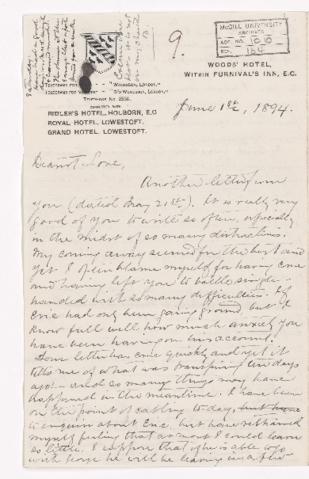 9.
McGILL UNIVERSITY
ARCHIVES
ACC. NO.
WOODS' HOTEL,
WITHIN FURNIVAL'S INN, E.C.
RIDLER'S HOTEL, HOLBORN, E.C
ROYAL HOTEL, LOWESTOFT.
GRAND HOTEL, LOWESTOFT.
June 1st, 1894.
Dearest Love,
Another letter from
you (dated May 21st). It is really very
good of you to write so often, especially
in the midst of so many distractions.
My coming away seemed for the best and
yet I often blame myself for having come
and having left you to battle single
handed with so many difficulties. If
Eric had only been going round but I
know full well how much anxiety you
have been having on his account.
Your letter has come quickly and yet it
tells me of what was transpiring ten days
ago — and so many things may have
happened in the meantime. I have been
on the point of cabling to day, but have
to enquire about Eric, but have restrained
myself feeling that at most I could learn
so little. I suppose that if he is able to go
with George he will be leaving in a few